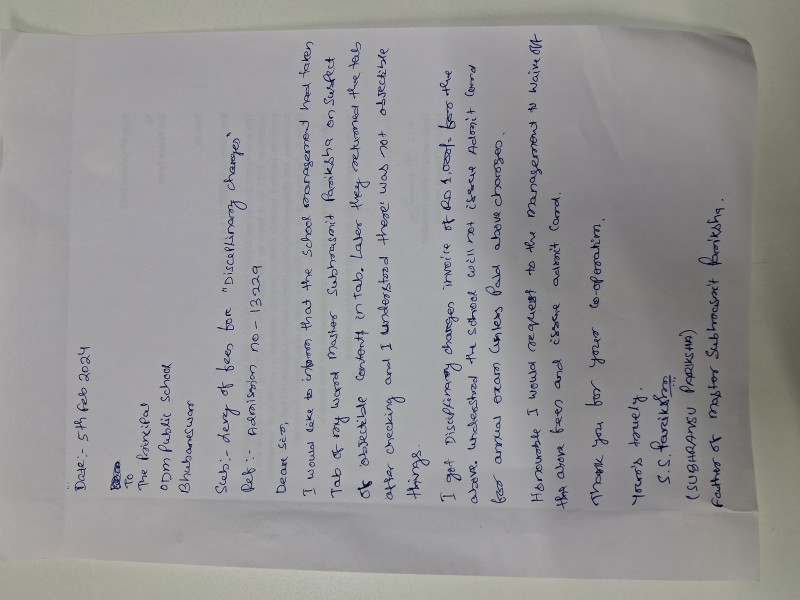 Date:- 5th Feb 2024
To
The Principal
ODM Public School
Bhubaneswar
Sub:- deny of fees for "Disciplinary charges"
Ref:- Admission no - 13229
Dear Sir,
I would like to inform that the school management had taken
Tab of my ward Master Subhrasmit Pariksha on suspect
of objectible contents in Tab. Later they returned the tab
after checking and I understood there was not objectible
things.
I got Disciplinary charges invoice of Rs 1,000/- for the
above. understood the school will not issue Admit Card
for annual exam unless Paid above charges.
Honourable I would request to the management to waive off
the above fees and issue admit Card.
Thank you for your co-operation.
Your's truely.
S.S. Pariksha
(SUBHRANSU PARIKSHA)
Father of Master Subhrasmit Pariksha.